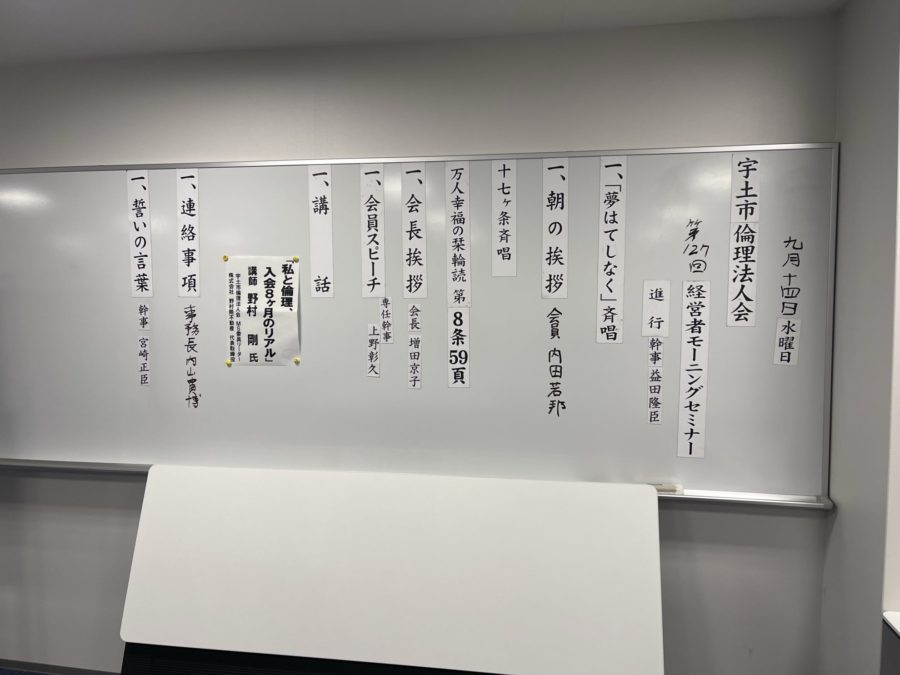 九月十四日水曜日
宇土市倫理法人会
第127回 経営者モーニングセミナー
進行 幹事 益田隆臣
一、「夢はてしなく」斉唱
一、朝の挨拶 会員 内田若邦
十七ヶ条斉唱
万人幸福の栞輪読 第8条59頁
一、会長挨拶 会長 増田京子
一、会員スピーチ 専任幹事 上野彰久
一、講話
「私と倫理、
入会8ヶ月のリアル」
講師 野村 剛 氏
宇土市倫理法人会 MS委員リーダー
株式会社 野村剛不動産 代表取締役
一、連絡事項 事務長 内山貴博
一、誓いの言葉 幹事 宮崎正臣